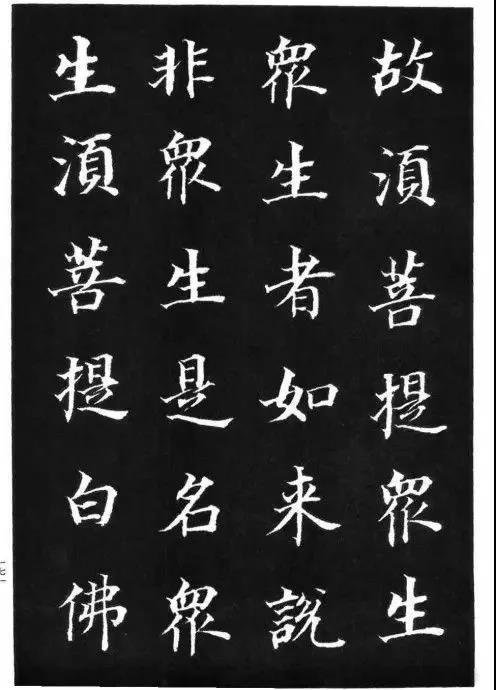 故湏菩提衆生
衆生者如来說
非衆生是名衆
生湏菩提白佛